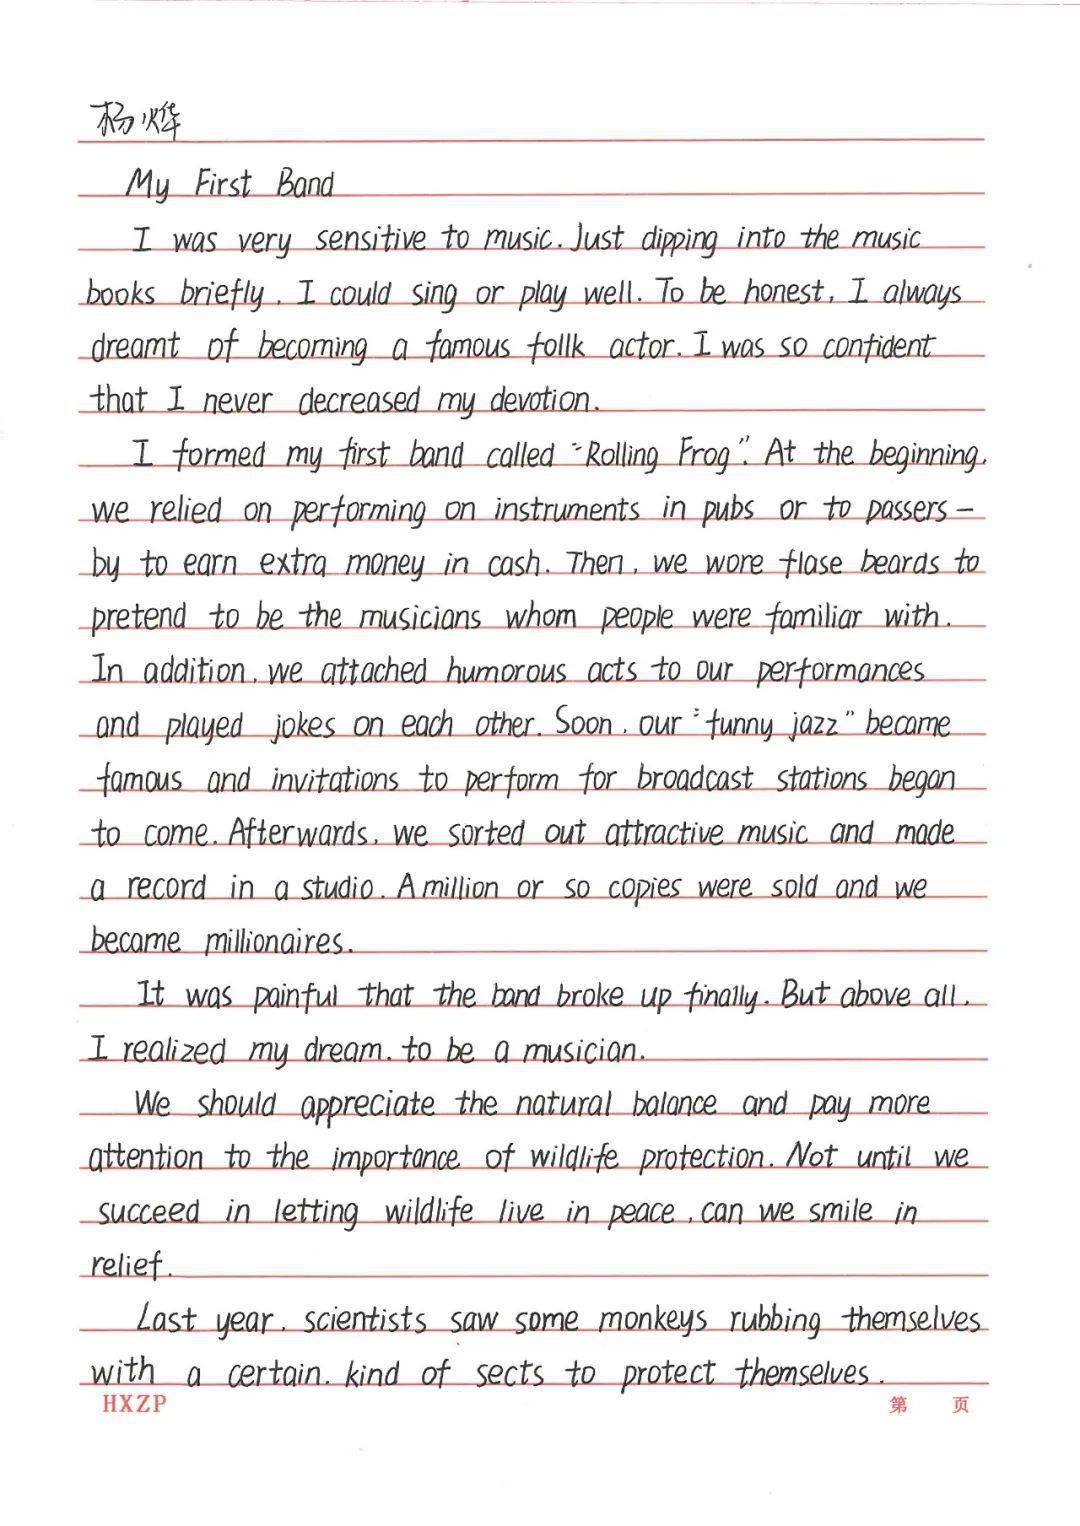 杨烨
My First Band
I was very sensitive to music. Just dipping into the music
books briefly, I could sing or play well. To be honest, I always
dreamt of becoming a famous follk actor. I was so confident
that I never decreased my devotion.
I formed my first band called "Rolling Frog". At the beginning,
we relied on performing on instruments in pubs or to passers-
by to earn extra money in cash. Then, we wore flase beards to
pretend to be the musicians whom people were familiar with.
In addition, we attached humorous acts to our performances
and played jokes on each other. Soon, our "funny jazz" became
famous and invitations to perform for broadcast stations began
to come. Afterwards, we sorted out attractive music and made
a record in a studio. A million or so copies were sold and we
became millionaires.
It was painful that the band broke up finally. But above all,
I realized my dream. to be a musician.
We should appreciate the natural balance and pay more
attention to the importance of wildlife protection. Not until we
succeed in letting wildlife live in peace, can we smile in
relief.
Last year, scientists saw some monkeys rubbing themselves
with a certain. kind of sects to protect themselves.
HXZP 第 页